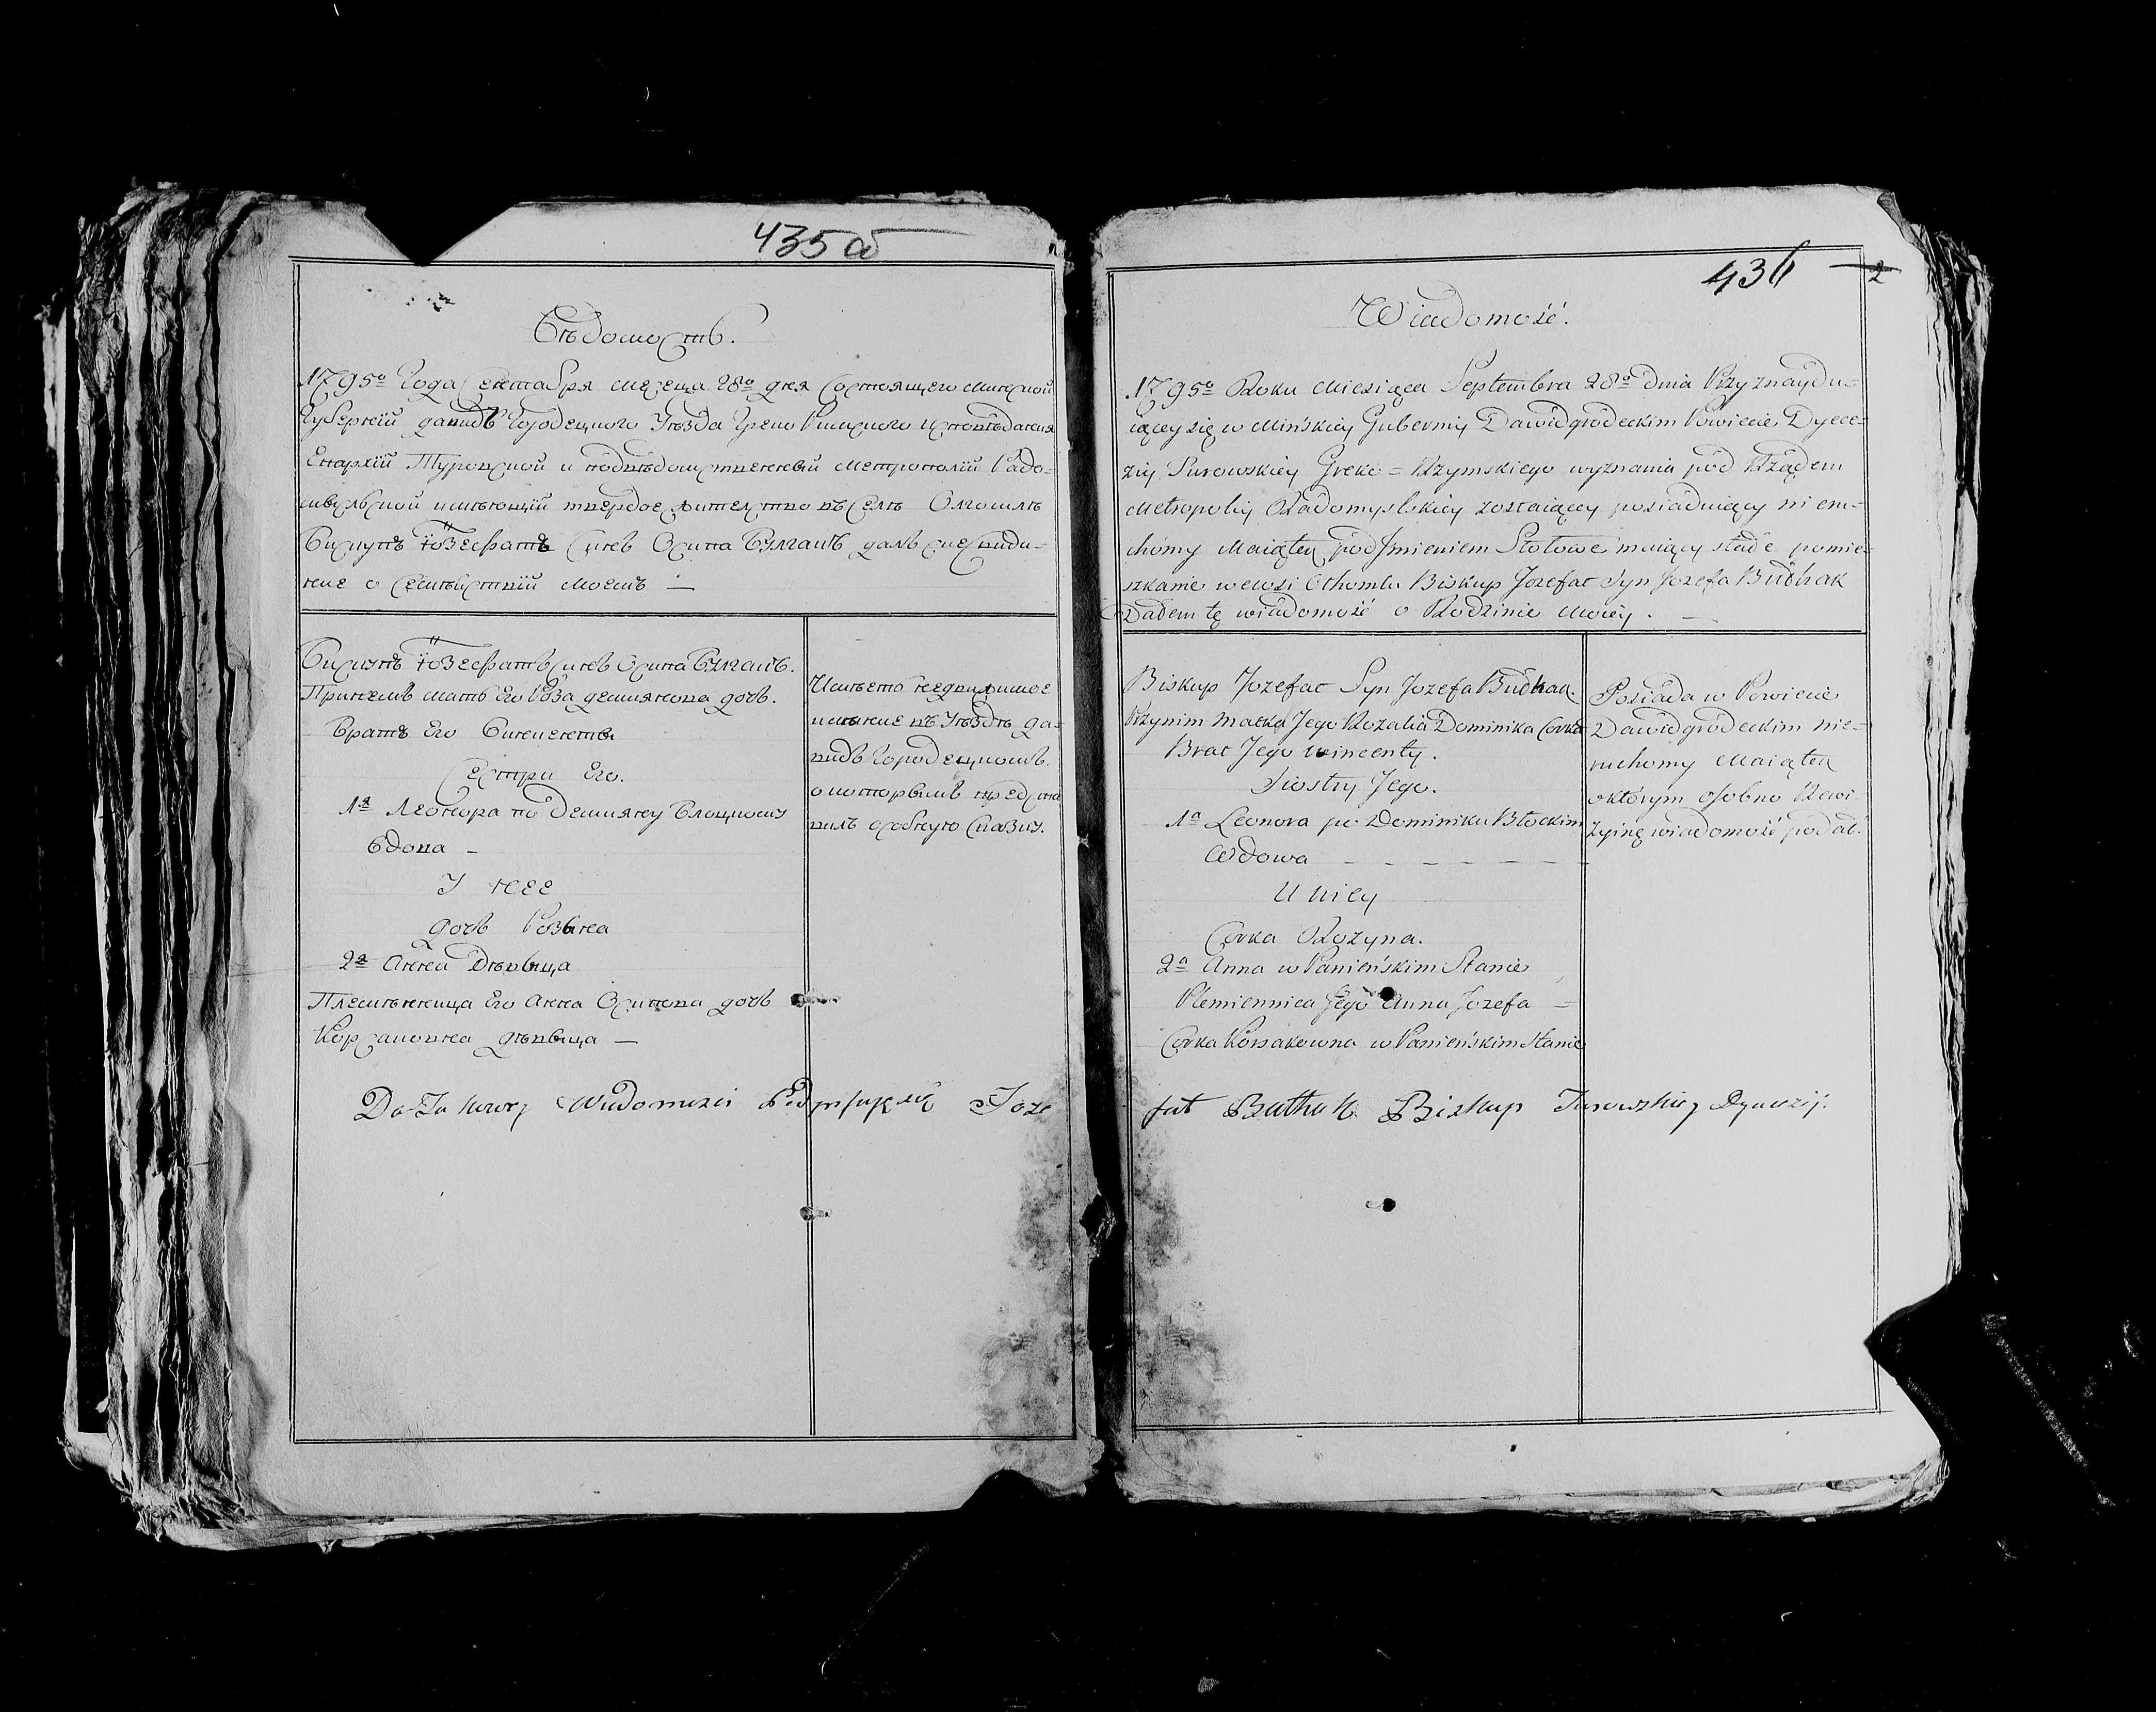 435 об
Вѣдомость.
1795º Года Сентабря месеца 28º дня Состоящего Минской
Губернїи давидъ Городецкого Уѣзда Греко Римского исповѣдания
Епархїи Туровской и подвѣдомственной Метрополїи Радо-
мысльской имѣющїй твердое жителство въ Селѣ Олгомлѣ
Бискупъ Їозефатъ Сынъ Осипа Булгакъ далъ сие види-
ние о Семѣйствїй моемъ —
Бискупъ Їозефатъ сынъ Осипа Булгакъ.
При немъ мать Его Роза демиянова дочь.
Братъ Его Винцентый
Сестри Его.
1я Леонора по демияну Блоцкому
Вдова —
У нее
дочь Розына
2я Анна Дѣвыца
Племѣнница Его Анна Осипова дочь
Корсаковна дѣвыца —
Имѣетъ недвижимое
имѣние въ Уѣздѣ да-
видъ Городецкомъ.
о которымъ предста
вилъ особную Сказку.
Do Ta kowey Wiadomosci Podpisuję się Joze
436
2
Wiadomość.
1795º Roku Miesiąca Septembra 28º dnia Przyznaydu-
iącey się w Mińskiey Gubernij Dawidgródeckim Powiecie Dyece-
zij Turowskiey Greko = Rzymskiego wyznania pod Rządem
Metropolij Radomyslskiey zostaiący posiaduiący nieru-
chomy Maiątek pod Jmieniem Stołowe maiący stałe pomie-
szkanie we wsi Olhomlu Biskup Jozefat Syn Jozefa Bułhak
Dałem tę wiadomość o Rodzinie Moiey. —
Biskup Jozefat Syn Jozefa Bułhak.
Przynim Matka Jego Rozalia Dominika Corka
Brat Jego Wincenty.
Siostry Jego.
1a Leonora po Dominiku Błockim
Wdowa – – – – – –
U niey
Corka Rozyna.
2a Anna w Panieńskim Stanie
Plemiennica Jego Anna Jozefa =
Corka Korsakowna w Panieńskim Stanie
Posiada w Powiecie
Dawidgródeckim nie-
ruchomy Maiątek
o którym osobno Rewi-
zyiną wiadomość podał.
fat Bułhak Biskup Turowskiey Dyecezij.